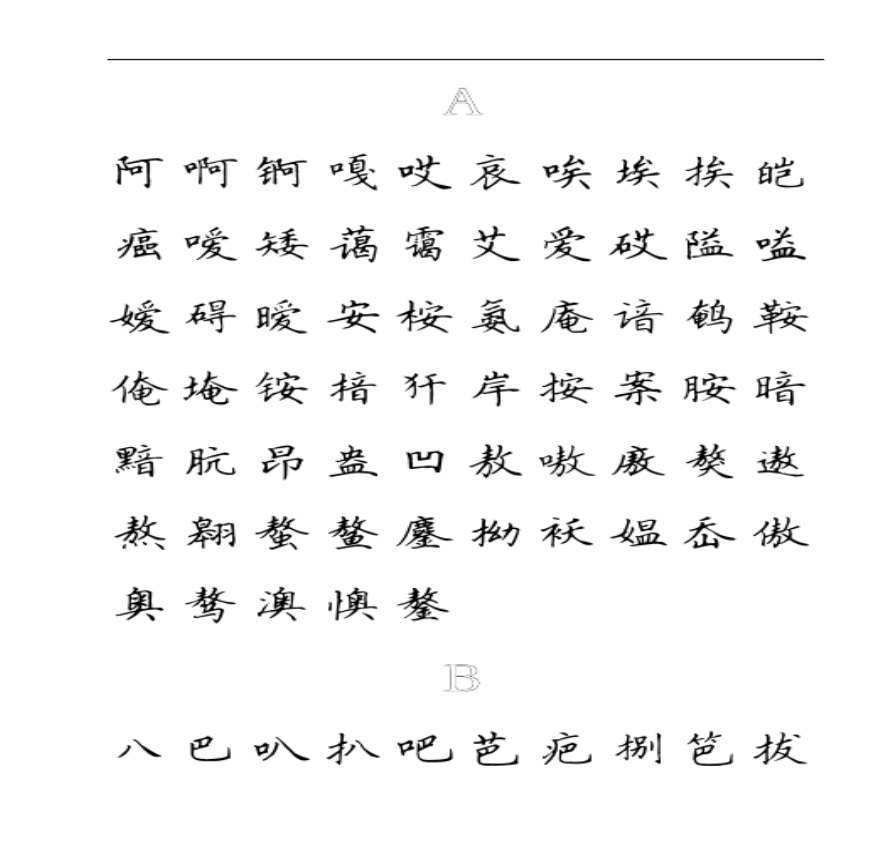 A
阿 啊 锕 嘎 哎 哀 唉 埃 挨 皑
癌 嗳 矮 蔼 霭 艾 爱 砹 隘 嗌
嫒 碍 暧 安 桉 氨 庵 谙 鹌 鞍
俺 埯 铵 揞 犴 岸 按 案 胺 暗
黯 肮 昂 盎 凹 敖 嗷 廒 獒 遨
熬 翱 螯 鳌 鏖 拗 袄 媪 岙 傲
奥 骜 澳 懊 鏊
B
八 巴 叭 扒 吧 芭 疤 捌 笆 拔